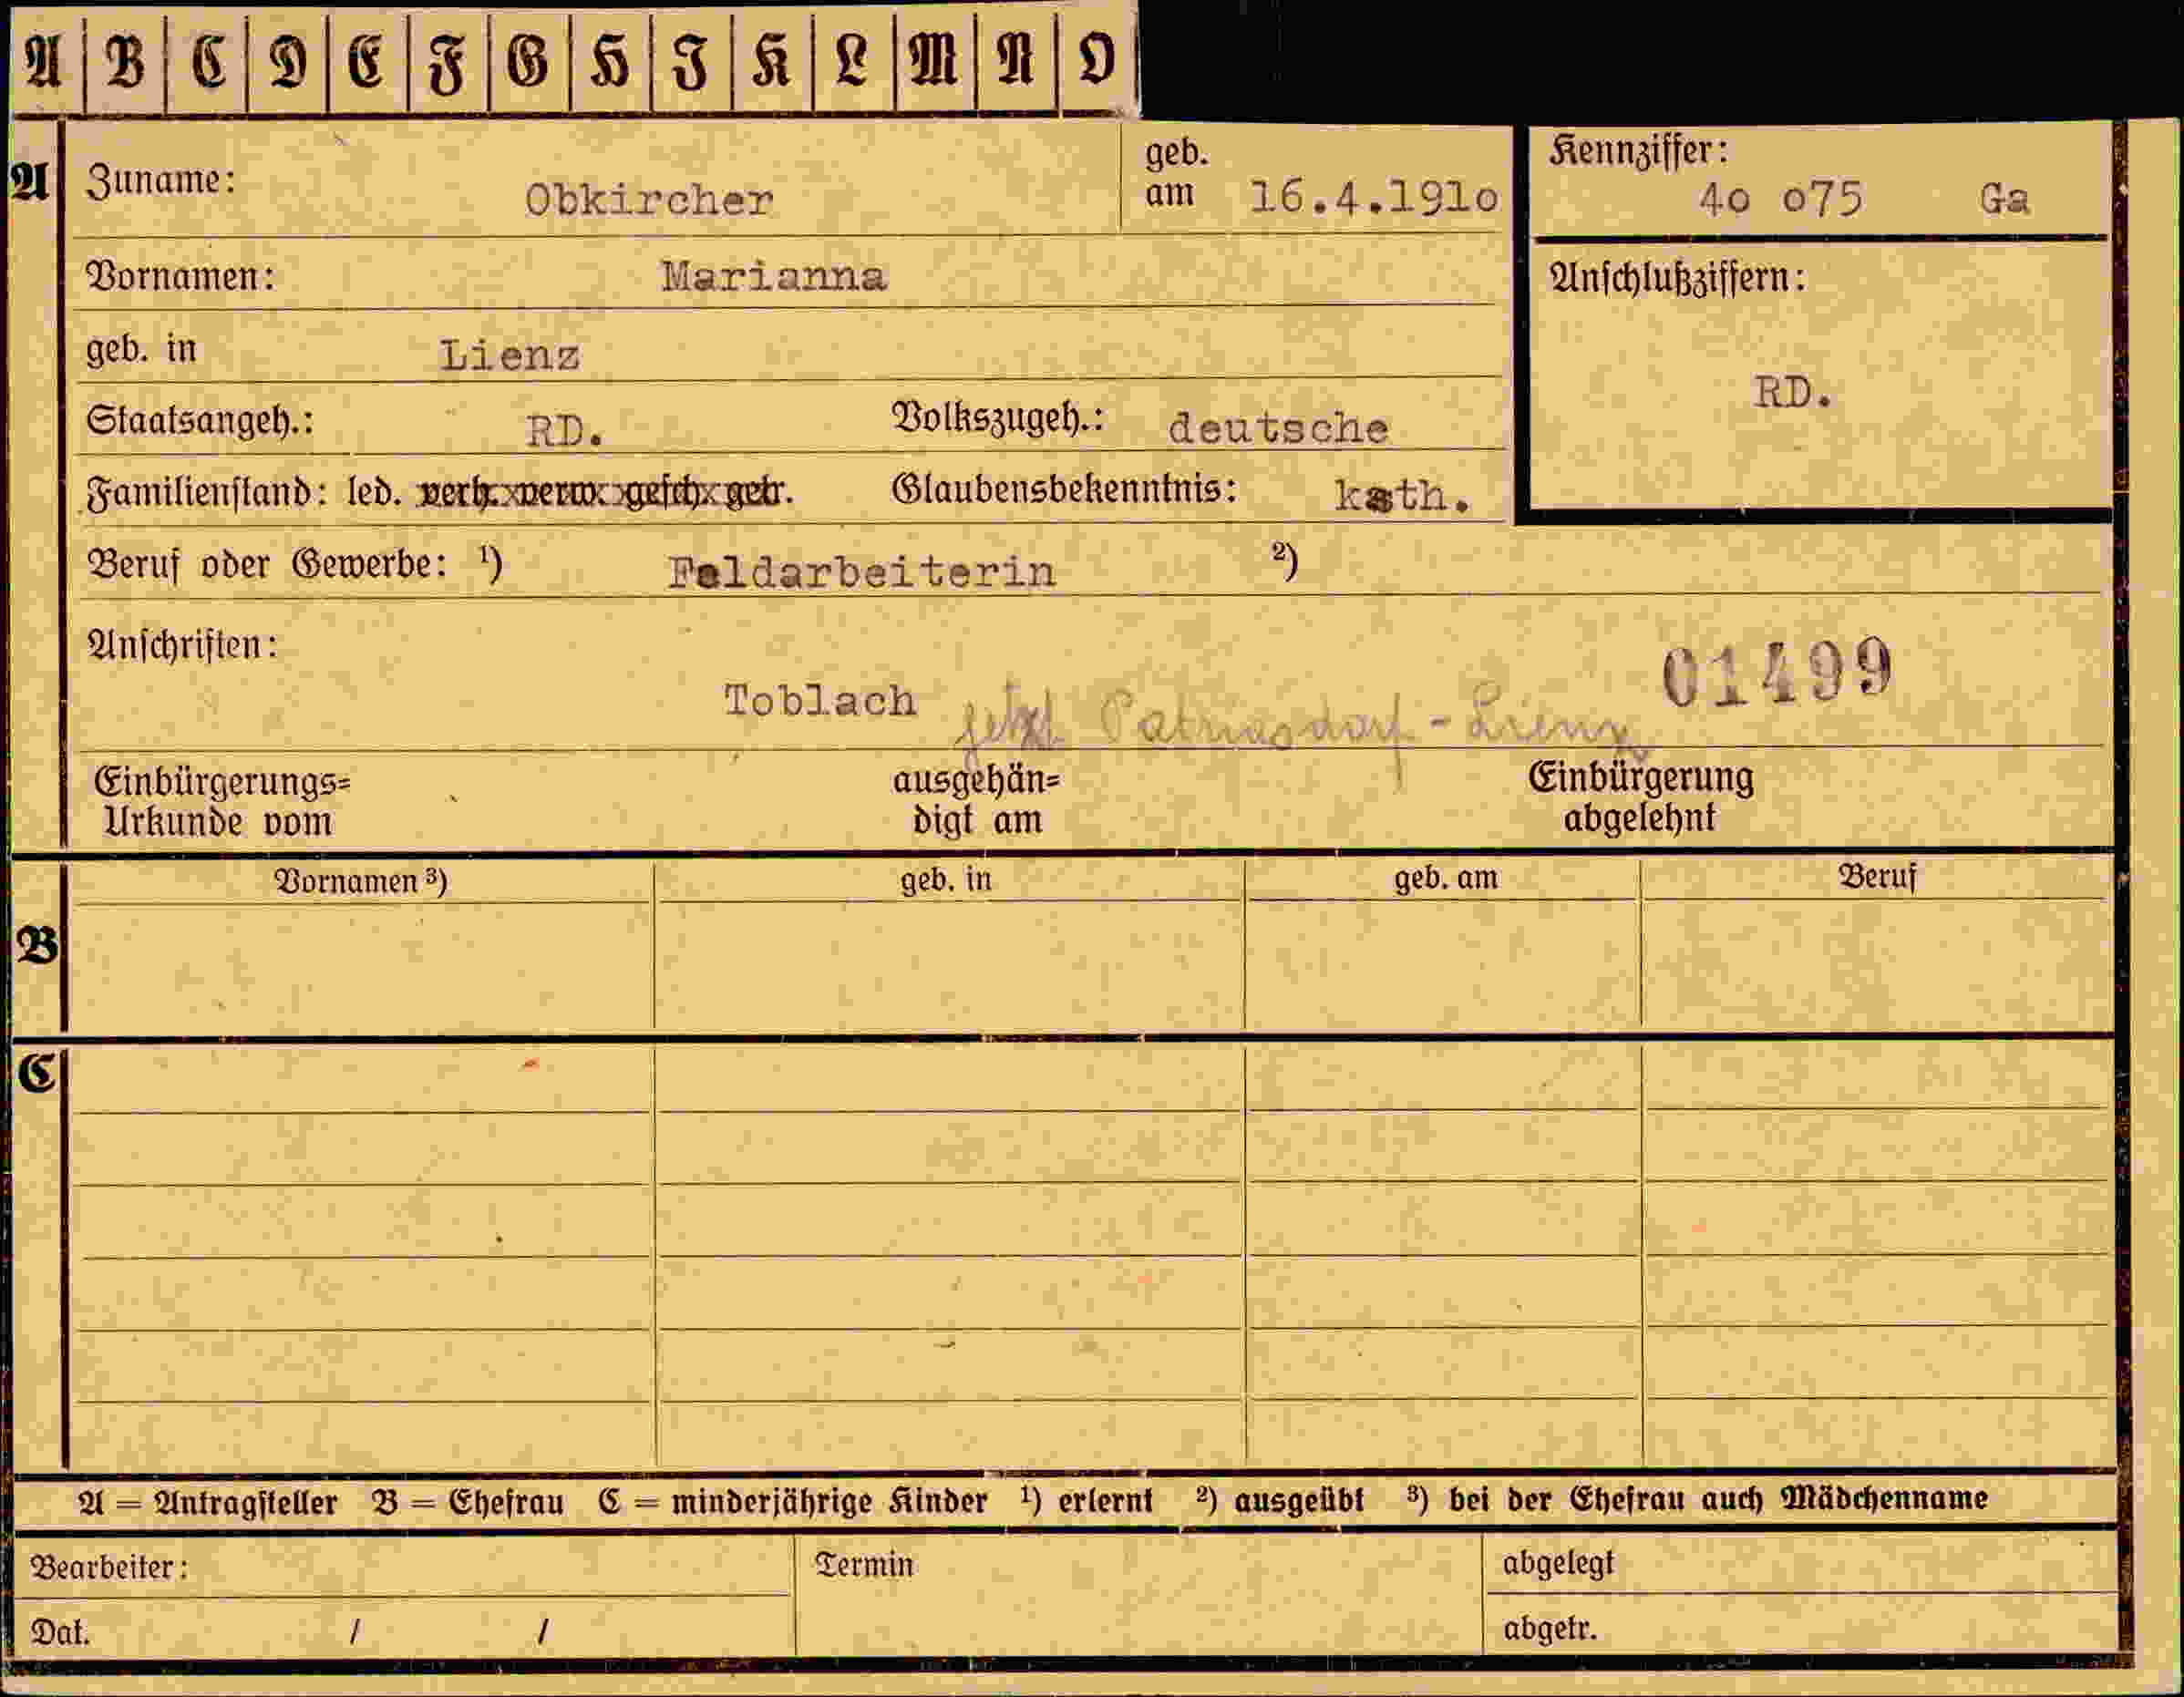 A B C D E F G H I K L M N O
A Zuname: Obkircher geb. am 16.4.191o
Kennziffer: 4o o75 Ga
Vornamen: Marianna
Anschlußziffern: RD.
geb. in Lienz
Staatsangeh.: RD. Volkszugeh.: deutsche
Familienstand: led. verh. verw. gesch. getr. Glaubensbekenntnis: kath.
Beruf oder Gewerbe: ¹) Feldarbeiterin ²)
Anschriften: 01499
Toblach jetzt Patriasdorf - Lienz
Einbürgerungs= ausgehän= Einbürgerung
Urkunde vom digt am abgelehnt
Vornamen ³) geb. in geb. am Beruf
B
C
A = Antragsteller B = Ehefrau C = minderjährige Kinder ¹) erlernt ²) ausgeübt ³) bei der Ehefrau auch Mädchenname
Bearbeiter: Termin abgelegt
Dat. / / abgetr.